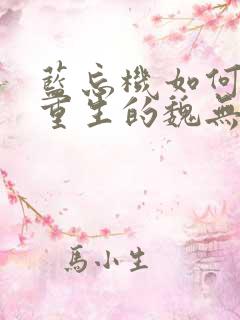 藍忘機如何
重生的魏無
馬小生